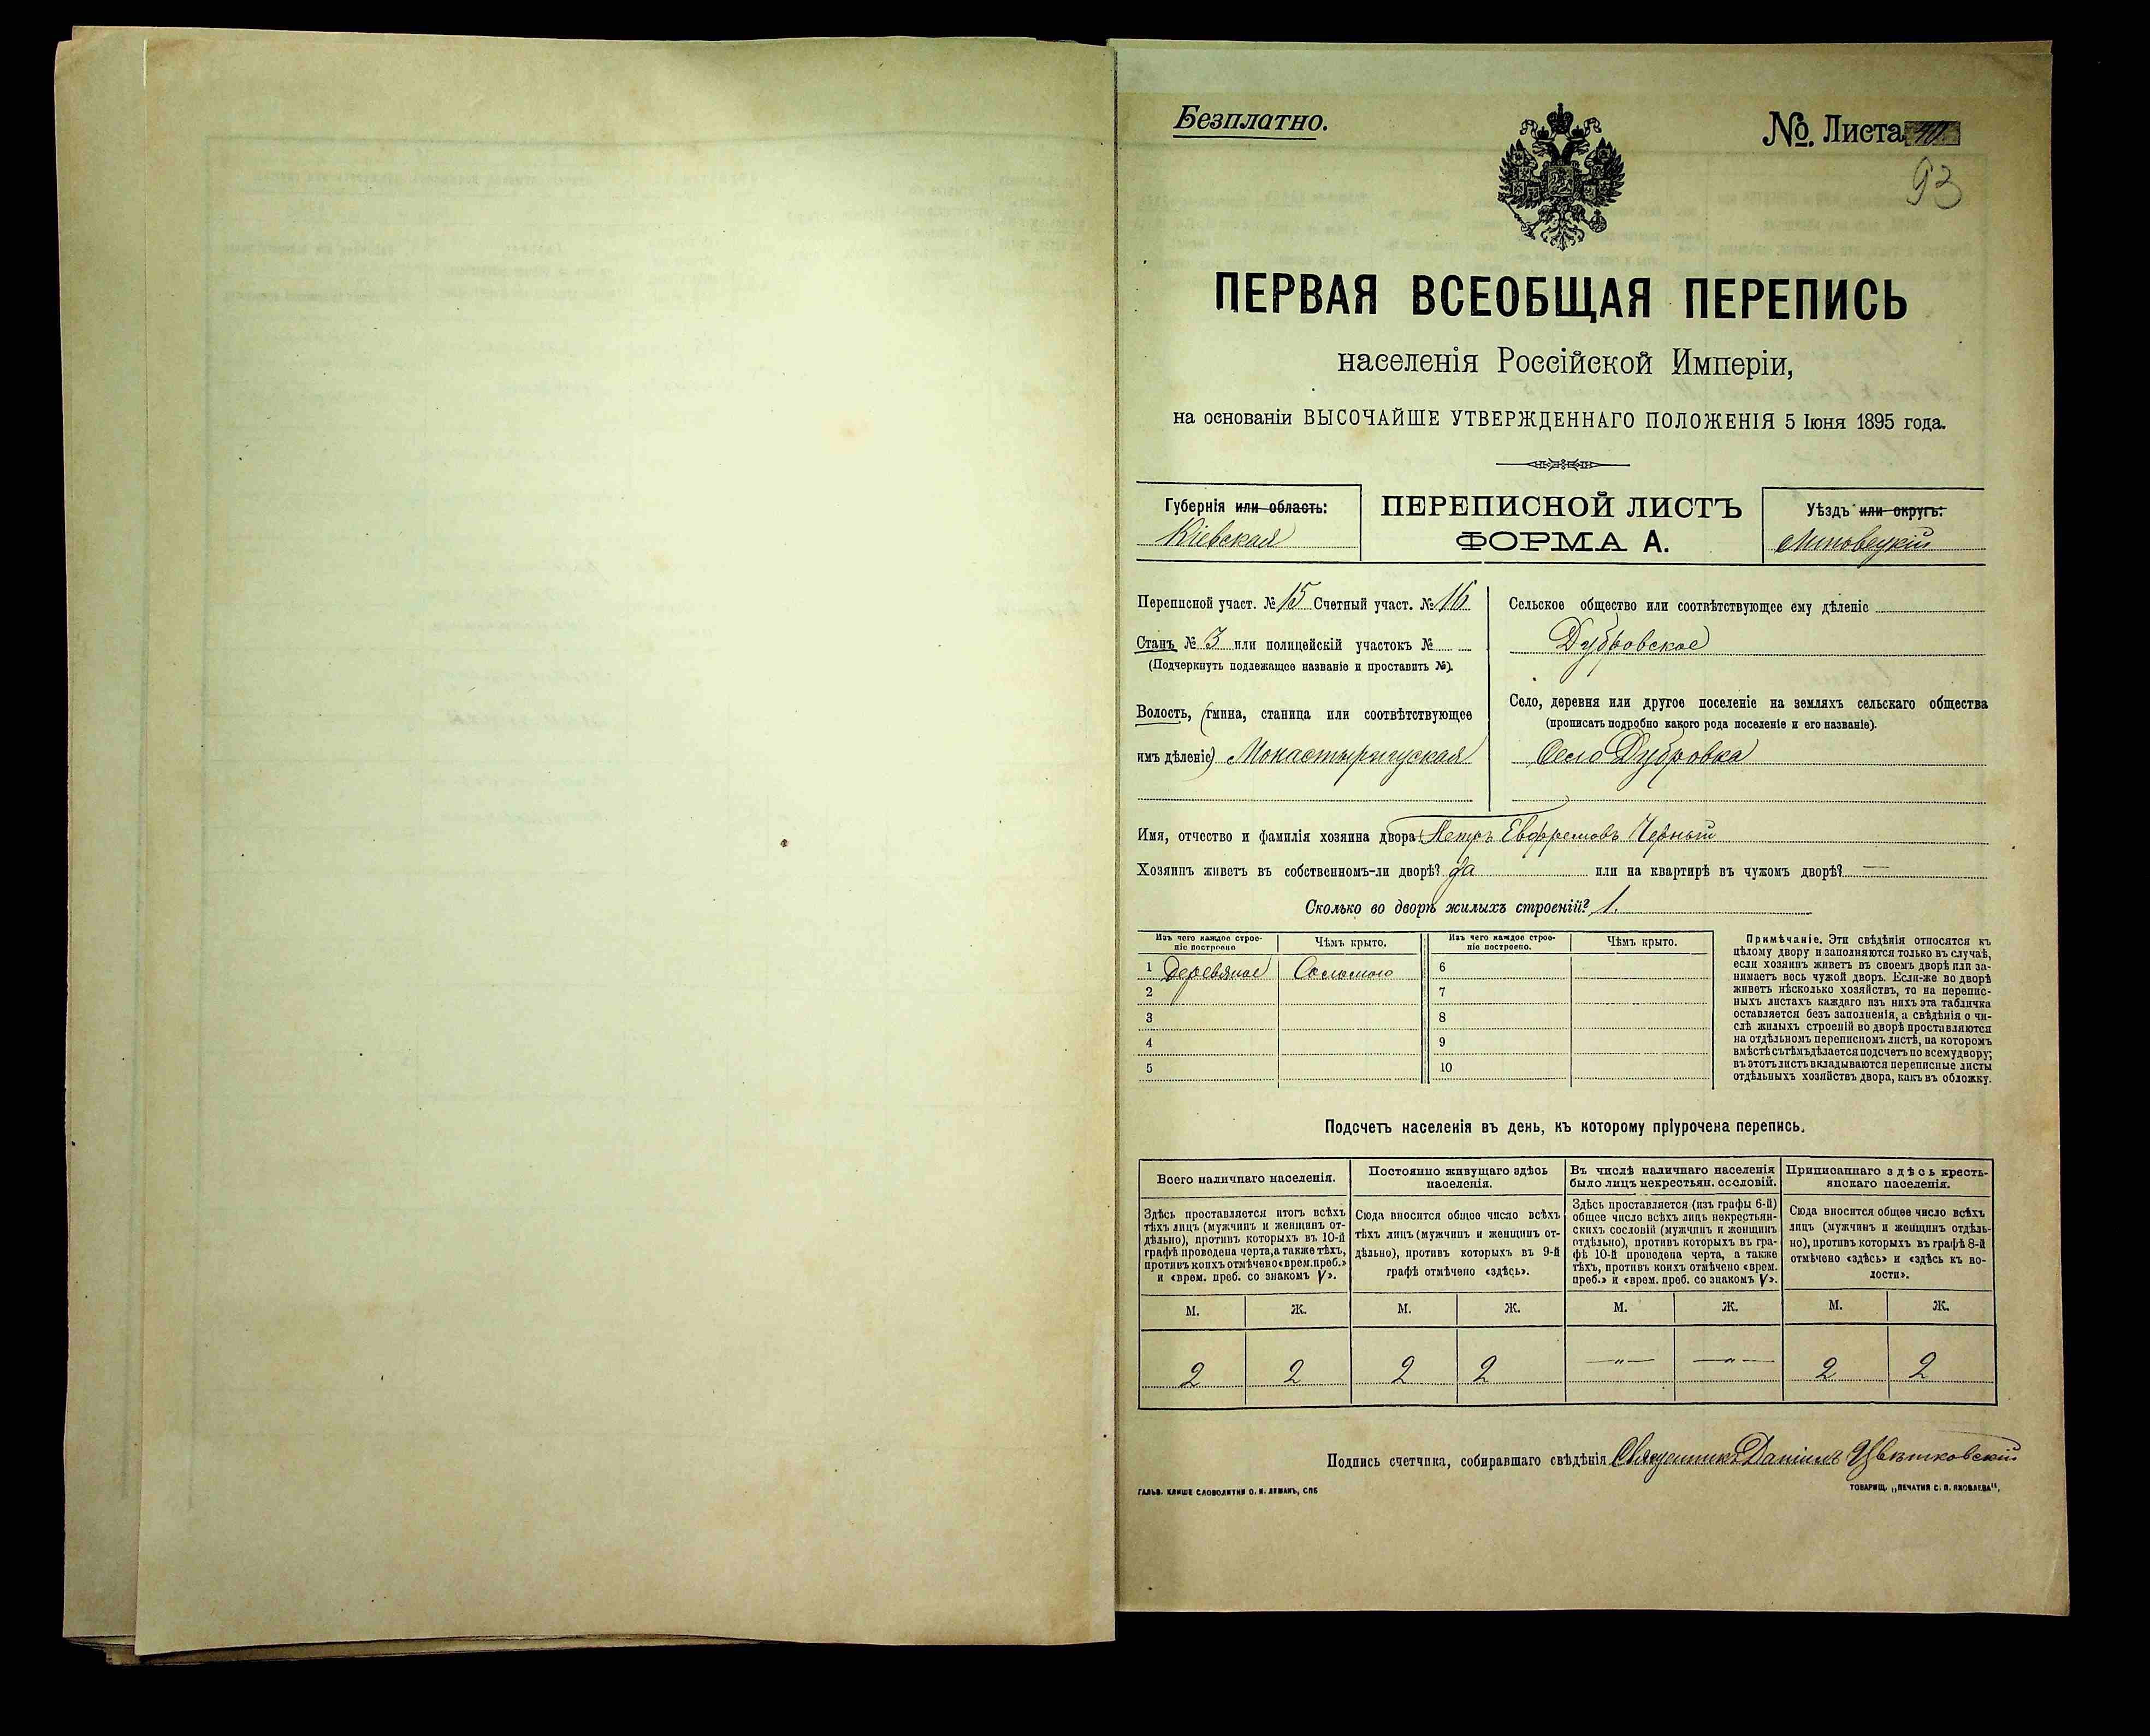 Безплатно.
№. Листа
93
ПЕРВАЯ ВСЕОБЩАЯ ПЕРЕПИСЬ
населенія Россійской Имперіи,
на основаніи ВЫСОЧАЙШЕ УТВЕРЖДЕННАГО ПОЛОЖЕНІЯ 5 Іюня 1895 года.
Губернія или область:
Кіевская
ПЕРЕПИСНОЙ ЛИСТЪ
ФОРМА А.
Уѣздъ или округъ:
Липовецкій
Переписной участ. № 15 Счетный участ. № 16
Станъ № 3 или полицейскій участокъ №
(Подчеркнуть подлежащее названіе и проставить №).
Волость, (гмина, станица или соотвѣтствующее
имъ дѣленіе) Монастырищская
Сельское общество или соотвѣтствующее ему дѣленіе
Дубровское
Село, деревня или другое поселеніе на земляхъ сельскаго общества
(прописать подробно какого рода поселеніе и его названіе).
Село Дубровка
Имя, отчество и фамилія хозяина двора Петръ Евфремовъ Черный
Хозяинъ живетъ въ собственномъ-ли дворѣ? да или на квартирѣ въ чужомъ дворѣ? —
Сколько во дворѣ жилыхъ строеній? 1.
Изъ чего каждое строе-
ніе построено
Чѣмъ крыто.
Изъ чего каждое строе-
ніе построено.
Чѣмъ крыто.
1 Деревяное Соломою 6
2 7
3 8
4 9
5 10
Примѣчаніе. Эти свѣдѣнія относятся къ
цѣлому двору и заполняются только въ случаѣ,
если хозяинъ живетъ въ своемъ дворѣ или за-
нимаетъ весь чужой дворъ. Если-же во дворѣ
живетъ нѣсколько хозяйствъ, то на перепис-
ныхъ листахъ каждаго изъ нихъ эта табличка
оставляется безъ заполненія, а свѣдѣнія о чи-
слѣ жилыхъ строеній во дворѣ проставляются
на отдѣльномъ переписномъ листѣ, на которомъ
вмѣстѣ съ тѣмъ дѣлается подсчетъ по всему двору;
въ этотъ листъ вкладываются переписные листы
отдѣльныхъ хозяйствъ двора, какъ въ обложку.
Подсчетъ населенія въ день, къ которому пріурочена перепись.
Всего наличнаго населенія.
Здѣсь проставляется итогъ всѣхъ
тѣхъ лицъ (мужчинъ и женщинъ от-
дѣльно), противъ которыхъ въ 10-й
графѣ проведена черта, а также тѣхъ,
противъ коихъ отмѣчено «врем. преб.»
и «врем. преб. со знакомъ V».
Постоянно живущаго здѣсь
населенія.
Сюда вносится общее число всѣхъ
тѣхъ лицъ (мужчинъ и женщинъ от-
дѣльно), противъ которыхъ въ 9-й
графѣ отмѣчено «здѣсь».
Въ числѣ наличнаго населенія
было лицъ некрестьян. сословій.
Здѣсь проставляется (изъ графы 6-й)
общее число всѣхъ лицъ некрестьян-
скихъ сословій (мужчинъ и женщинъ
отдѣльно), противъ которыхъ въ гра-
фѣ 10-й проведена черта, а также
тѣхъ, противъ коихъ отмѣчено «врем.
преб.» и «врем. преб. со знакомъ V».
Приписаннаго здѣсь кресть-
янскаго населенія.
Сюда вносится общее число всѣхъ
лицъ (мужчинъ и женщинъ отдѣль-
но), противъ которыхъ въ графѣ 8-й
отмѣчено «здѣсь» и «здѣсь къ во-
лости».
М. Ж. М. Ж. М. Ж. М. Ж.
2 2 2 2 —„— —„— 2 2
Подпись счетчика, собиравшаго свѣдѣнія Священникъ Даніилъ Цвѣтковскій
ГАЛЬВ. КЛИШЕ СЛОВОЛИТНИ О. И. ЛЕМАНЪ, СПБ
ТОВАРИЩ. „ПЕЧАТНЯ С. П. ЯКОВЛЕВА“.